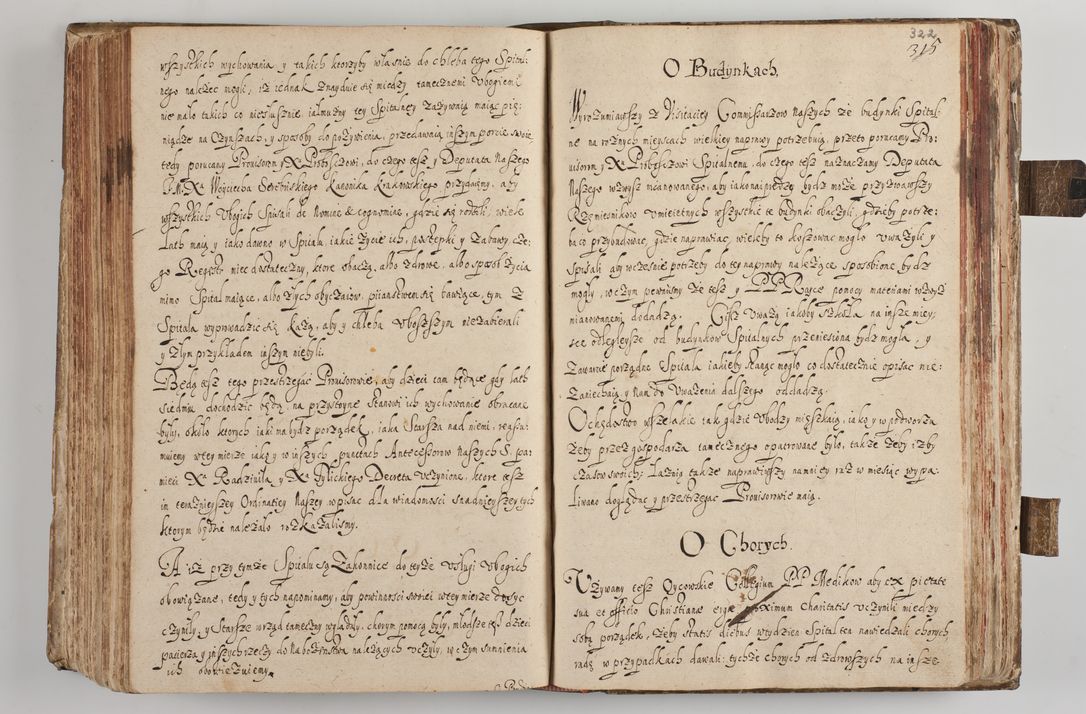 wszystkich wychowania y takich ktorzyby własnie do chleba tego Spital:
nego nalezec mogli, iz iednak znayduie się między tamecznemi Vbogiemi
nie mało takich co niesłusznie iałmuzny tey Spitalney zazywaią maiąc pie:
niądze na Czynszach, y sposoby do pozywienia, przedawaią inszym porcie swoie
tedy porucamy Prouisorom y Xu Proboszczowi, do czego tesz y Deputata Naszego
Woyciecha Serebrińskiego Kanonika Krakowskiego przydaiemy, aby
wszystkich Vbogich Spisali de Nomine & cognomine, gdzie się rodzili, wiele
Lath maią y iako dawno w Spitalu, iakie Zycie ich, postępki y zabawy cze:
go Regestr miec dostateczny, ktore obaczą, albo zdrowe, albo sposob zycia
mimo Spital maiące, albo złych obyczaiow, piianstwem się bawiące, tym z
Spitala wyprowadzic się każą, aby y chleba Vboszszym niezabierali
y złym przykładem inszym niebyli.
Będą tesz tego przestrzegac Prouisorowie, aby dzieci tam będące gdy lath
siedmiu dochodzic będą, na przystoyne stanowi ich wychowanie obracane
były, około ktorych iaki ma bydz porządek, iaka Starsza nad niemi, reassu:
muiemy w tey mierze iako y w inszych punctach Antecessorow Naszych S. pa:
mieci Xa Radziwiła y Xa Tylickiego Decreta vczynione, ktore tesz
in teraznieyszey Ordinatiey Naszey wpisac dla wiadomosci snadnieyszey tych
ktorym będzie nalezało rozkazalismy.
A iz przy tymze Spitalu są Zakonnice do teyze vsługi Vbogich
obowiązane, tedy y tych napominamy, aby powinnosci swoiei w tey mierze dosyc
czyniły, y Starsze w rząd tameczny wglądały, chorym pomocą były, młodsze tesz dzieci
pacierza y inszych rzeczy do Nabozenstwa nalezących vczyły, w czym sumnienia
ich obowiezuiemy.
322
315
O Budynkach.
Wyrozumiawszy z Visitaciey Commissarzow Naszych ze budynki Spital:
ne na roznych mieyscach wielkiey naprawy potrzebuią, przeto porucamy Pro:
uisorom y Xu Proboszczowi Spitalnemu, do czego tesz naznaczamy Deputata
Naszego wzwysz mianowanego, aby iako naipredzey bydz moze przyzwawszy
Rzemiesnikow vmieietnych wszystkie te budynki obaczyli, gdzieby potrze:
ba co przybudowac, gdzie naprawiac, wieleby to kosztowac mogło vwazyli y
spisali aby wczesnie potrzeby do tey naprawy nalezące sposobione bydz
mogły, w czym pewnismy ze tesz y PP Rayce pomocy macenam wzwysz
mianowanemi dodadzą. Cisz vwazą iakoby szkoła na insze miey:
sce odlegleysze od budynkow Spitalnych przeniesiona bydz mogła, y
Zawarcie porządne Spitala iakieby stanąc mogło co dostatecznie opisac nie:
zaniechaią y Nam do vwazenia dalszego oddadzą.
Ochędostwo wszelakie tak gdzie Vbodzy mięszkaią, iako y w podworzu
zeby przez gospodarza tamecznego opatrowane było, takze zeby izby
czasow swoich, Łaznią takze naprawiwszy namniey raz w miesiąc wypa:
liwano doglądac y przestrzegac Prouisorowie maią.
O Chorych.
Vzywamy tesz Oycowskie Collegium PP Medikow aby ex pietate
sua et officio Christianæ erga proximum charitatis vczynili miedzy
sobą porządek, zeby statis diebus w tydzien Spital ten nawiedzali chorych
radę w przypadkach dawali: tychze chorych od zdrowszych na insze